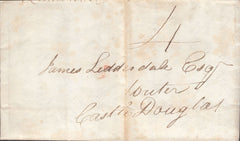 4
James Lidderdale Esqr
writer
Castle Douglas